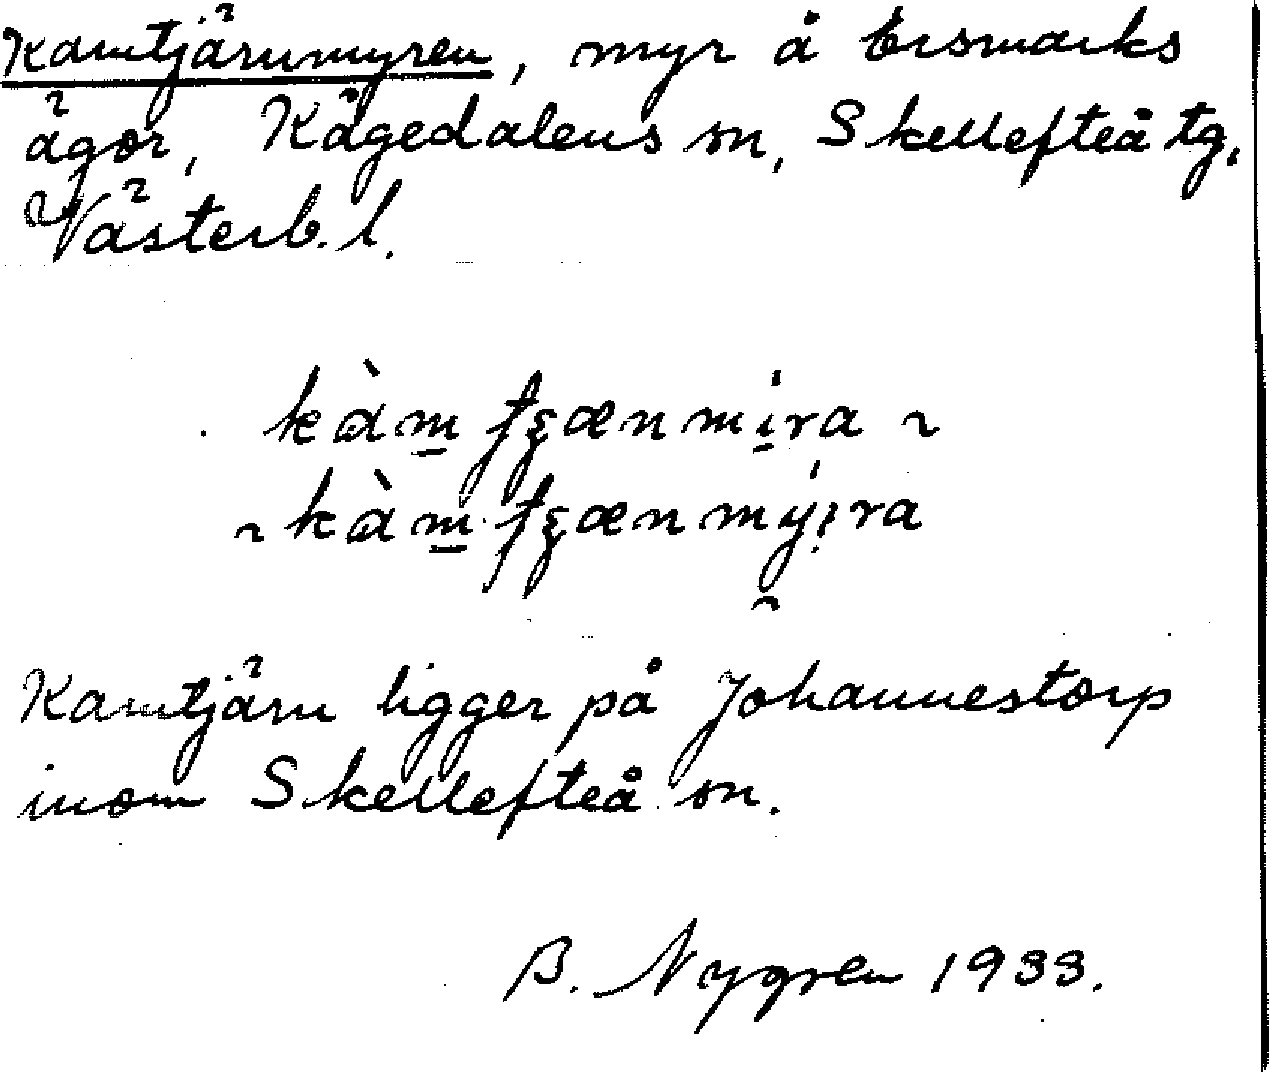 Kamtjärnmyren, myr å Ersmarks
ägor, Kågedalens sn, Skellefteå tg,
Västerb. l.
Kamtjärn ligger på Johannestorp
inom Skellefteå sn.
B. Nygren 1933.